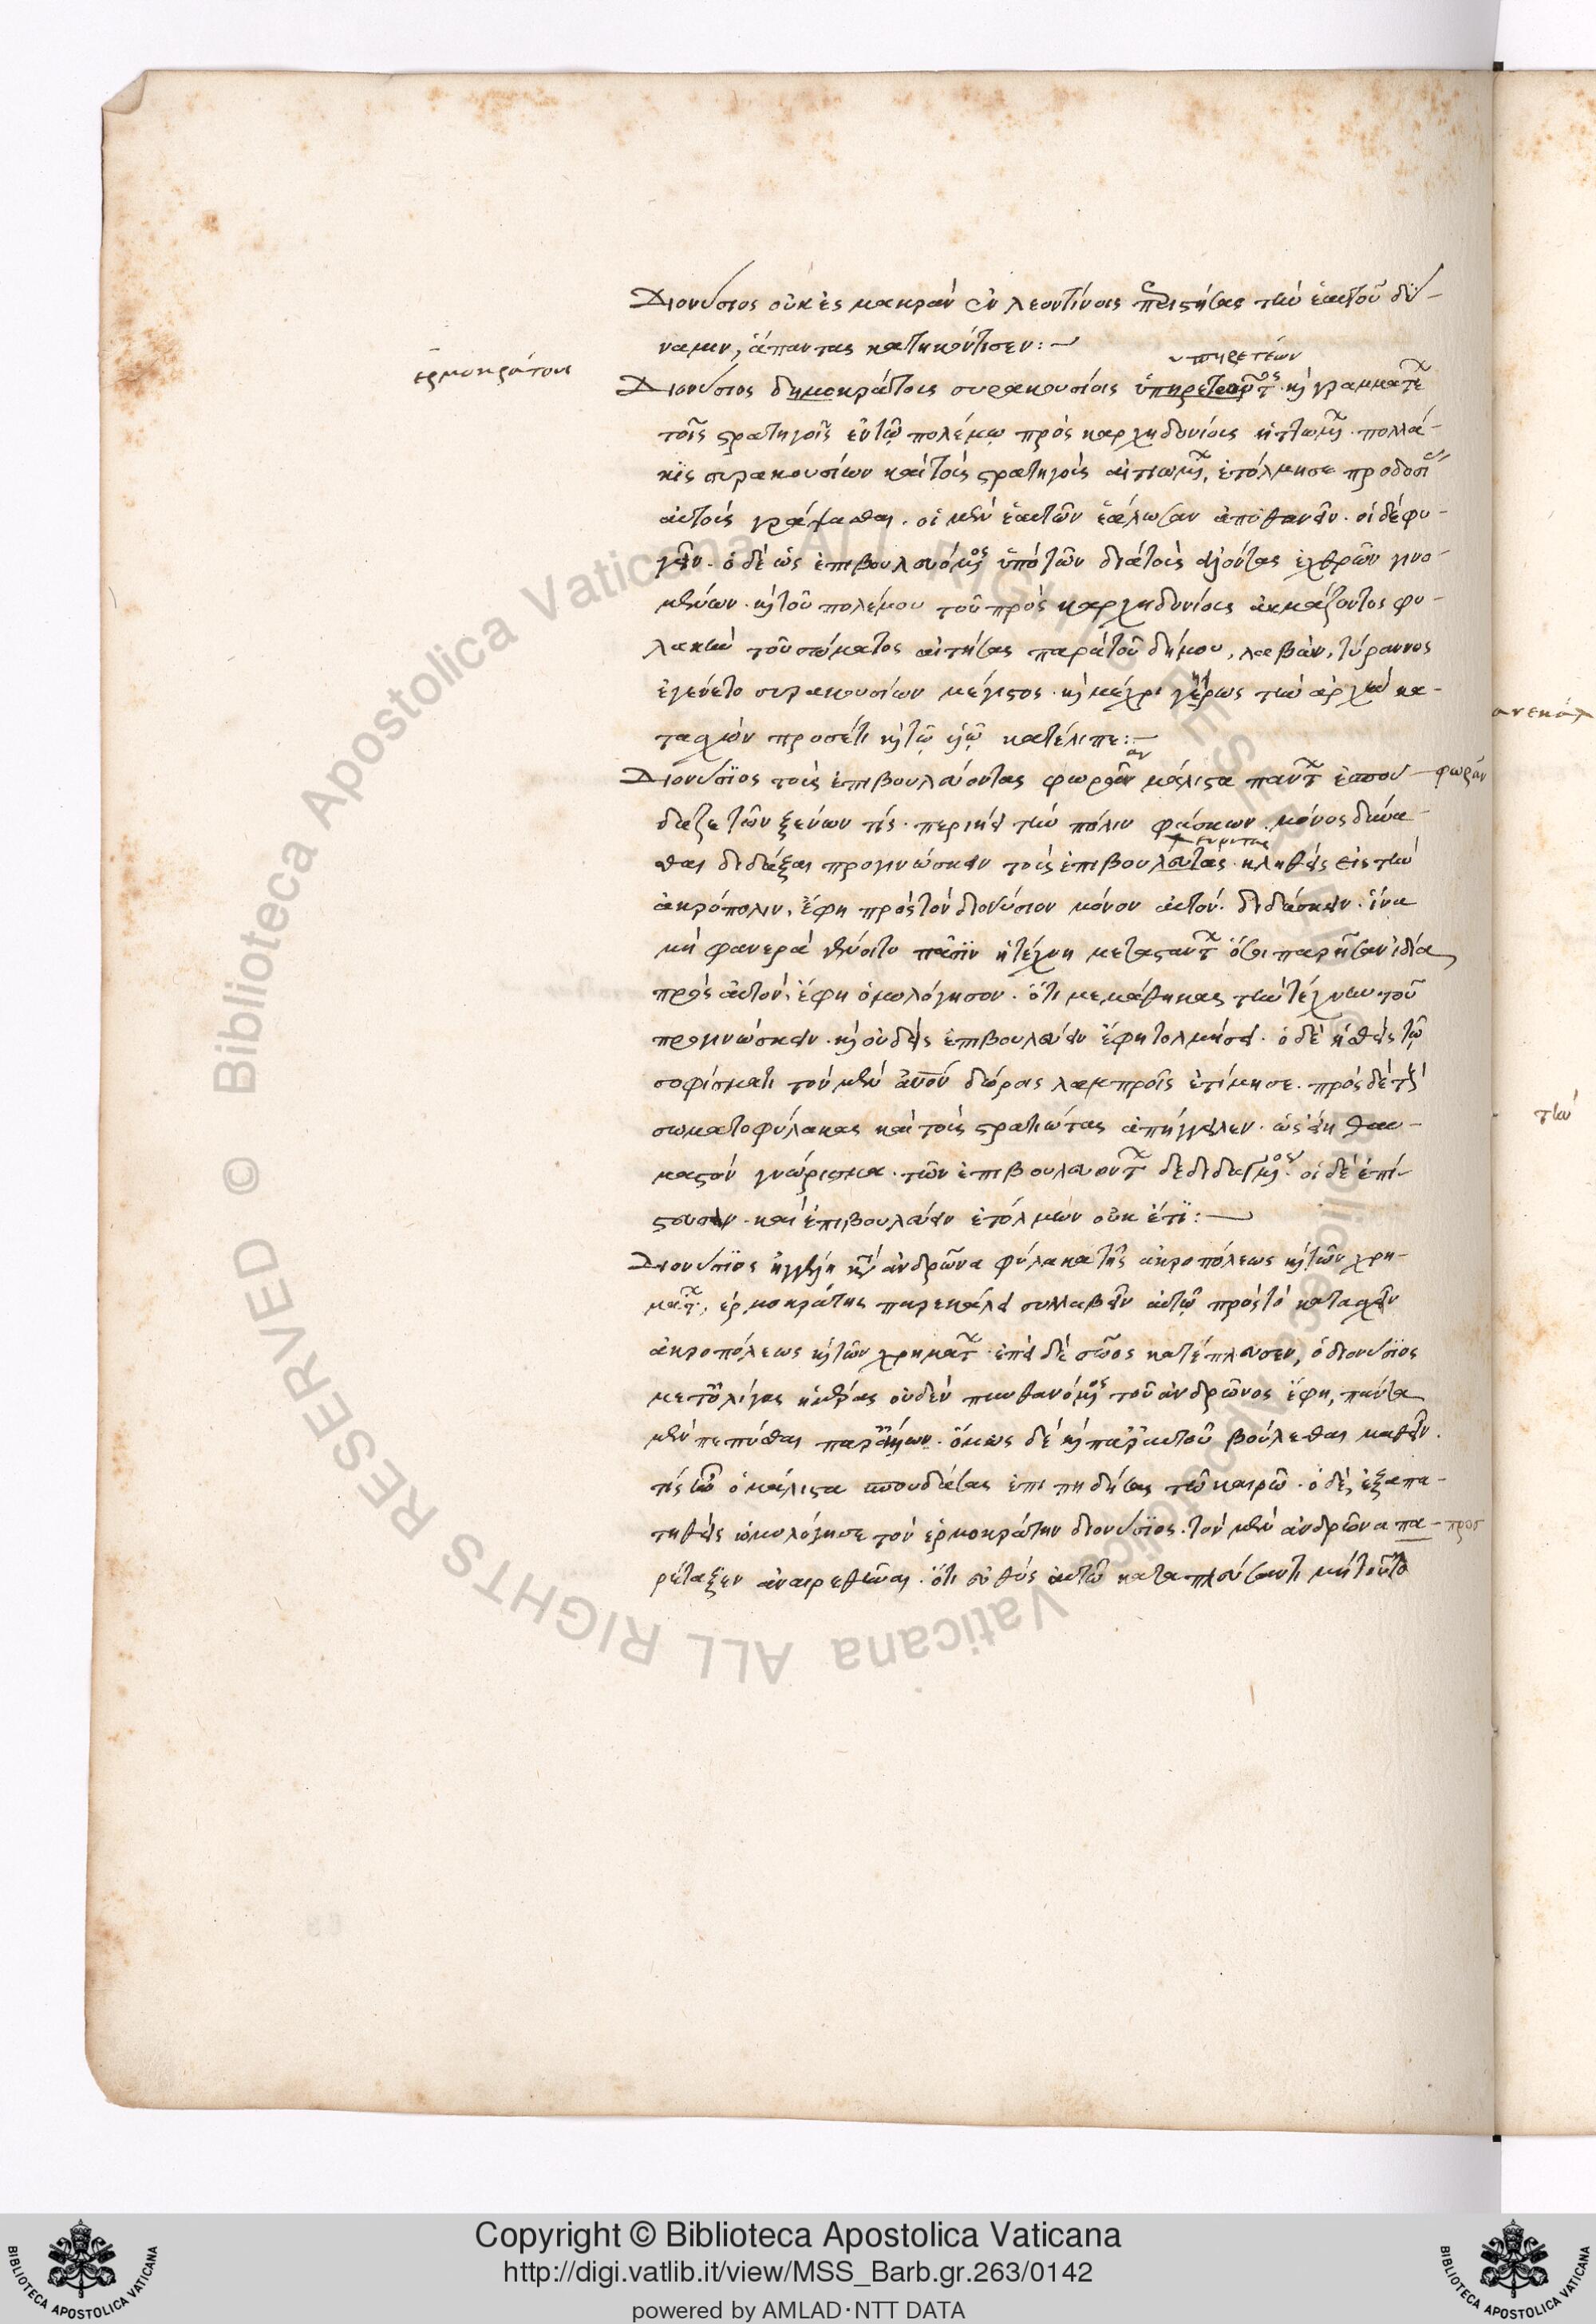 Διονύσιος οὐκ ἐς μακρὰν ἐν λεοντίνοις περιστήσας τὴν ἑαυτοῦ δύ-
ναμιν, ἅπαντας κατηκόντισεν:
ἑρμοκράτους
ὑπηρετέων
Διονύσιος δημοκράτοις συρακουσίοις ὑπηρετ κ γραμματε
τοῖς στρατηγοῖς ἐν τῷ πολέμῳ πρὸς καρχηδονίοις ἡττωμ πολλά-
κις συρακουσίων καὶ τοὺς στρατηγοὺς αἰτιωμ, ἐτόλμησε προδοσί
αὐτοὺς γράψασθαι. οἱ μὲν ἑαυτῶν ἑάλωσαν ἀποθανεῖν. οἱ δὲ φυ-
γεῖν. ὁ δὲ ὡς ἐπιβουλευόμος ὑπὸ τῶν διὰ τοὺς ἁλόντας ἐχθρῶν γινο-
μένων. κ τοῦ πολέμου τοῦ πρὸς καρχηδονίοις ἀκμάζοντος φυ-
λακὴν τοῦ σώματος αἰτήσας παρὰ τοῦ δήμου, λαβὼν, τύραννος
ἐγένετο συρακουσίων μέγιστος. κ μέχρι γήρως τὴν ἀρχὴν κα-
τασχὼν προσέτι κ τῷ υἱῷ κατέλιπε:
Διονύσιος τοὺς ἐπιβουλεύοντας φωρᾶν μάλιστα παντ ἐσπού- φωρᾶν
δαζε τῶν ξένων τίς. περιιὼν τὴν πόλιν φάσκων. μόνος δύνα-
εύοντας
σθαι διδάξαι προγινώσκειν τοὺς ἐπιβουλεύτας. κληθεὶς εἰς τὴν
ἀκρόπολιν, ἔφη πρὸς τὸν διονύσιον μόνον αὐτὸν διδάσκειν. ἵνα
μὴ φανερὰ γένοιτο πᾶσιν ἡ τέχνη μεταστάντ ὅσοι παρῆσαν ἰδίᾳ
πρὸς αὐτὸν, ἔφη ὁμολόγησον. ὅτι μεμάθηκας τὴν τέχνην τοῦ
προγινώσκειν. κ οὐδεὶς ἐπιβουλεύειν ἔφη τολμήσει. ὁ δὲ ἡσθεὶς τῷ
σοφίσματι τὸν μὲν αὐτὸν δώροις λαμπροῖς ἐτίμησε. πρὸς δὲ τοὺς
σωματοφύλακας καὶ τοὺς στρατιώτας ἀπήγγειλεν. ὡς εἴη θαυ-
μαστὸν γνώρισμα. τῶν ἐπιβουλευόντ δεδιδαγμος. οἱ δὲ ἐπί-
στευσαν. καὶ ἐπιβουλεύειν ἐτόλμων οὐκ ἔτι:
Διονύσιος ἀνδρῶνα φύλακα τῆς ἀκροπόλεως κ τῶν χρη-
ματ, ἑρμοκράτης παρεκάλει συλλαβεῖν αὐτῷ πρὸς τὸ κατασχεῖν
ἀκροπόλεως κ τῶν χρηματ. ἐπεὶ δὲ σῶος κατέπλευσεν, ὁ διονύσιος
μετ' ὀλίγας ἡμέρας οὐδὲν πυνθανόμος τοῦ ἀνδρῶνος ἔφη, πάντα
μὲν πεπύσθαι παρ' ἄλλων. ὅμως δὲ κ παρ' αὐτοῦ βούλεσθαι μαθεῖν.
τίς ἦν ὁ μάλιστα σπουδάσας ἐπιπηδήσας τῷ καιρῷ. ὁ δὲ, ἐξαπα-
τηθεὶς ὡμολόγησε τὸν ἑρμοκράτην διονύσιος. τὸν μὲν ἀνδρῶνα πα- προσ
ρέταξεν ἀναιρεθῆναι. ὅτι εὐθὺς αὐτῷ καταπλεύσαντι μὴ τοῦτο
Copyright © Biblioteca Apostolica Vaticana
http://digi.vatlib.it/view/MSS_Barb.gr.263/0142
powered by AMLAD·NTT DATA